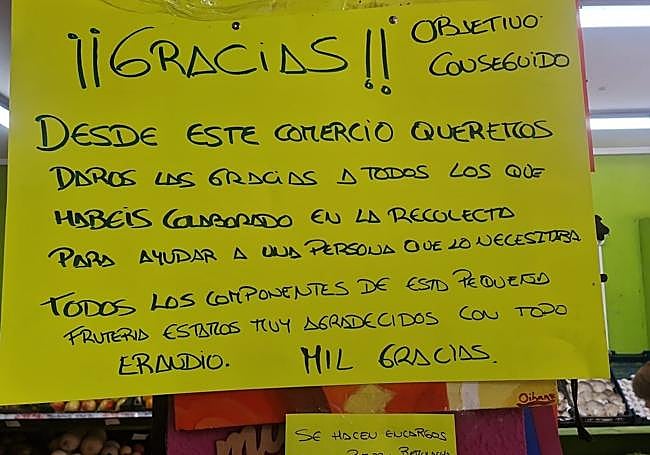 ¡¡GRACIAS!!
OBJETIVO
CONSEGUIDO
DESDE ESTE COMERCIO QUEREMOS
DAROS LAS GRACIAS A TODOS LOS QUE
HABEIS COLABORADO EN LA RECOLECTA
PARA AYUDAR A UNA PERSONA QUE LO NECESITABA
TODOS LOS COMPONENTES DE ESTA PEQUEÑA
FRUTERIA ESTAMOS MUY AGRADECIDOS CON TODO
ERANDIO. MIL GRACIAS.
Oihane
SE HACEN ENCARGOS